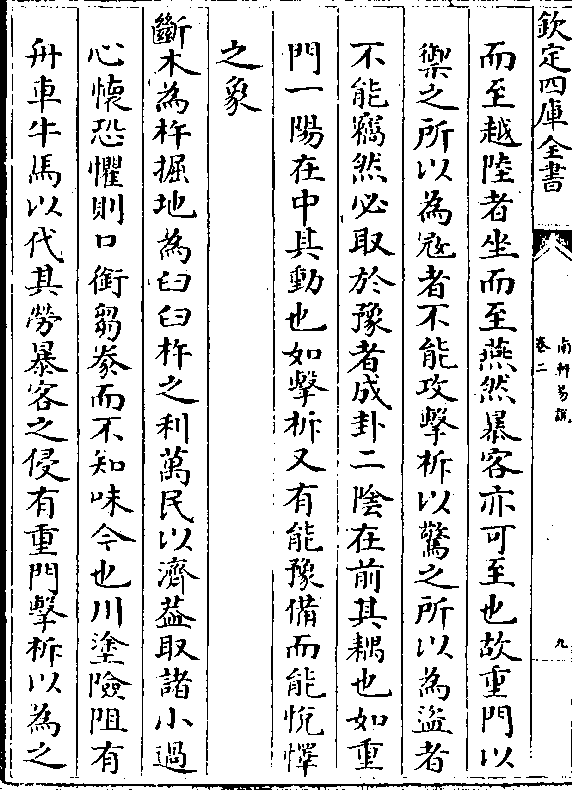 欽定四庫全書
南軒易說
卷二
九
而至越陸者坐而至燕然暴客亦可至也故重門以
禦之所以為寇者不能攻擊柝以驚之所以為盜者
不能竊然必取於豫者成卦二陰在前其耦也如重
門一陽在中其動也如擊柝又有能豫備而能悅懌
之象
斷木為杵掘地為臼臼杵之利萬民以濟葢取諸小過
心懷恐懼則口銜芻豢而不知味今也川塗險阻有
舟車牛馬以代其勞暴客之侵有重門擊柝以為之